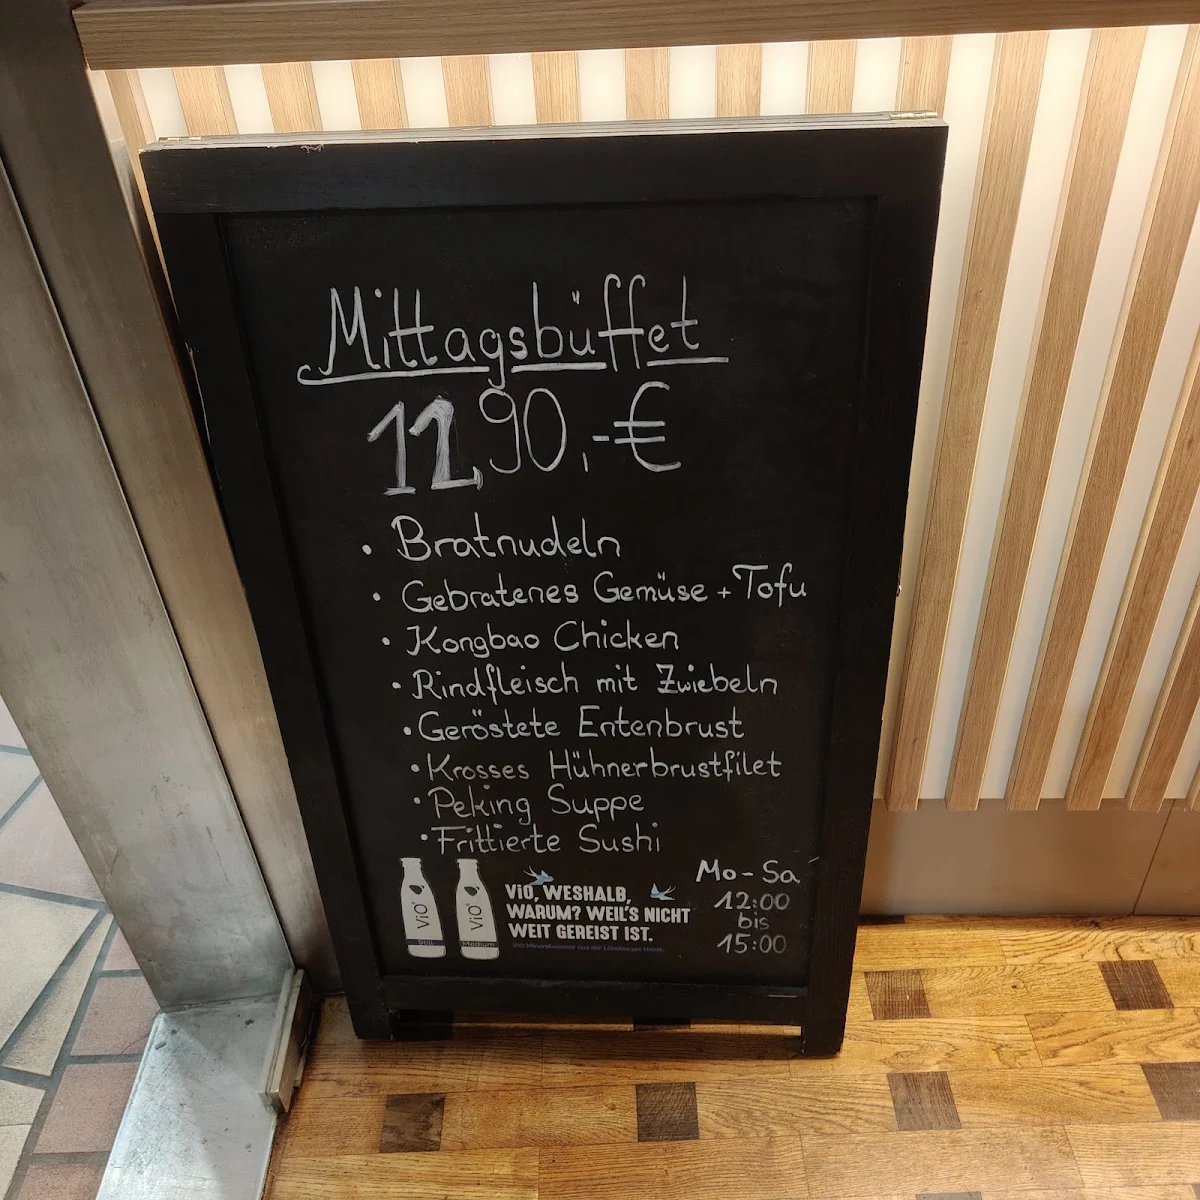 Mittagsbüffet
12,90,-€
• Bratnudeln
• Gebratenes Gemüse + Tofu
• Kongbao Chicken
• Rindfleisch mit Zwiebeln
• Geröstete Entenbrust
• Krosses Hühnerbrustfilet
• Peking Suppe
• Frittierte Sushi
Mo - Sa
12:00
bis
15:00
ViO
Still
ViO
Medium
ViO, WESHALB,
WARUM? WEIL'S NICHT
WEIT GEREIST IST.
ViO Mineralwasser aus der Lüneburger Heide.